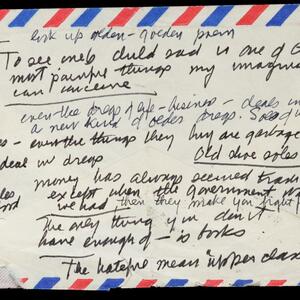 look up olden - golden poem
To see one's child sad is one of
most painful things my imagina
can conceive
even the dregs of life - business - deals in
a new kind of dregs. Sold
- even the things they buy are garbage
deal in dregs
Old shoe soles
money has always seemed
except when the government
we had then they make you fight
The only thing you don't
have enough of - is
The hateful mean "upper class